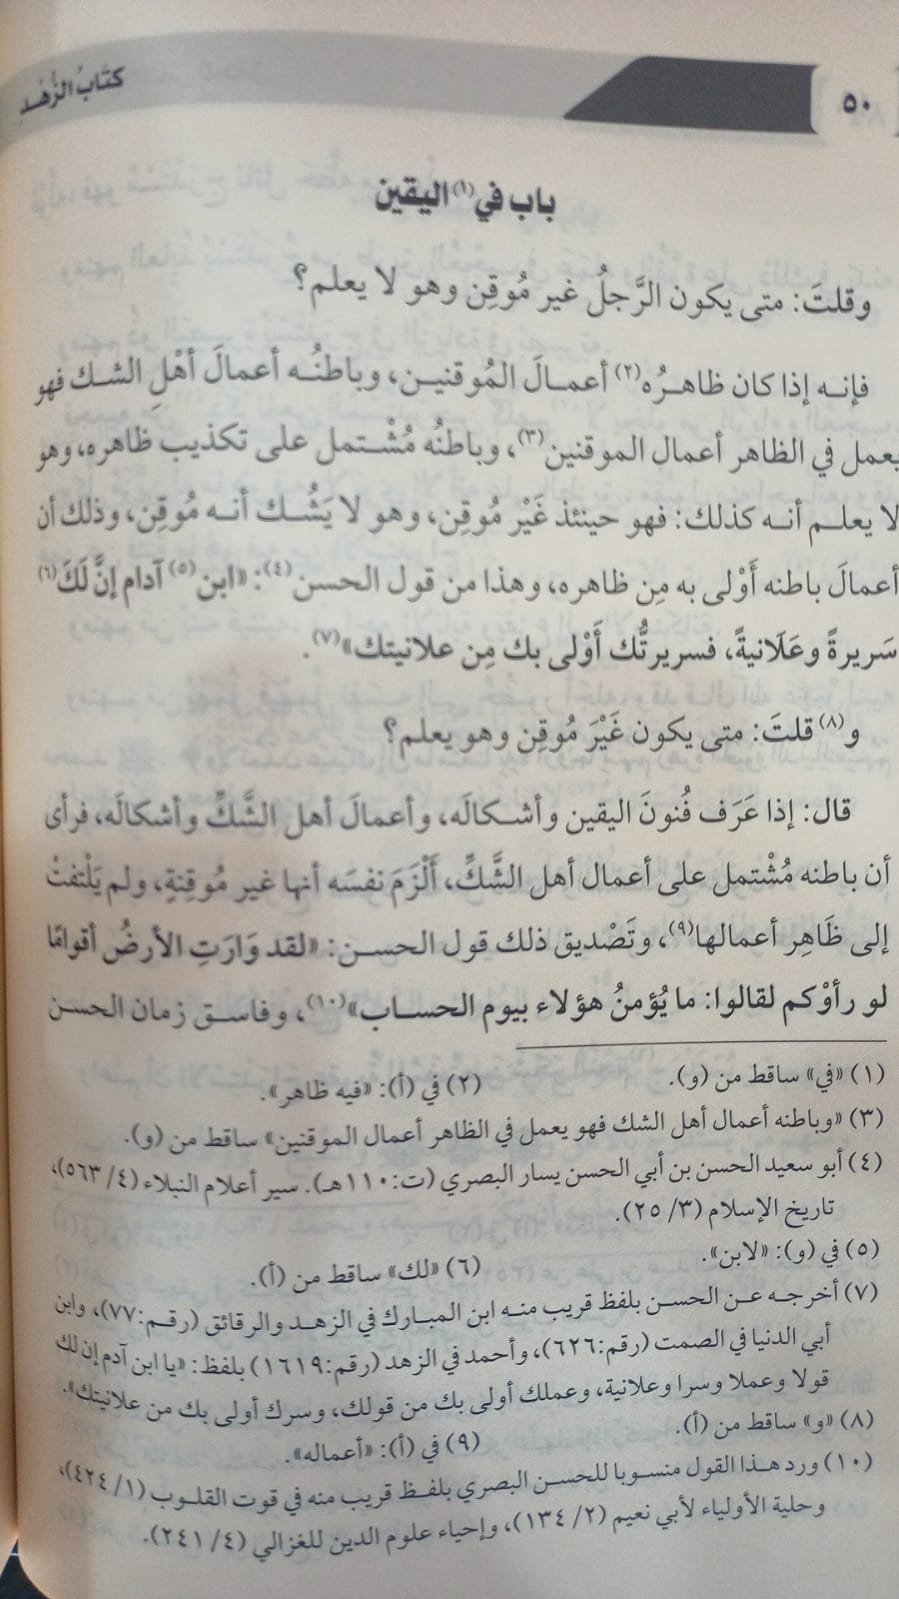 ٥٠
كتَابُ الزُّهْد
باب في(١) اليقين
وقلتَ: متى يكون الرَّجلُ غير مُوقِن وهو لا يعلم؟
فإنه إذا كان ظاهرُه(٢) أعمالَ المُوقنين، وباطنُه أعمالَ أهْلِ الشك فهو
يعمل في الظاهر أعمال الموقنين(٣)، وباطنُه مُشْتمل على تكذيب ظاهره، وهو
لا يعلم أنه كذلك: فهو حينئذ غَيْر مُوقِن، وهو لا يَشُك أنه مُوقِن، وذلك أن
أعمالَ باطنه أَوْلى به مِن ظاهره، وهذا من قول الحسن(٤): «ابن(٥) آدام إنَّ لَكَ(٦)
سَريرةً وعَلَانيةً، فسريرتُّك أَوْلى بك مِن علانيتك»(٧).
و(٨) قلتَ: متى يكون غَيْرَ مُوقِن وهو يعلم؟
قال: إذا عَرَف فُنونَ اليقين وأشكالَه، وأعمالَ أهل الشَّكِّ وأشكالَه، فرأى
أن باطنه مُشْتمل على أعمال أهل الشَّكِّ، أَلْزَمَ نفسَه أنها غير مُوقِنةٍ، ولم يَلْتفتْ
إلى ظَاهِر أعمالها(٩)، وتَصْديق ذلك قول الحسن: «لقد وَارَتِ الأرضُ أقوامًا
لو رأوْكم لقالوا: ما يُؤمنُ هؤلاء بيوم الحساب»(١٠)، وفاسق زمان الحسن
(١) «في» ساقط من (و). (٢) في (أ): «فيه ظاهر».
(٣) «وباطنه أعمال أهل الشك فهو يعمل في الظاهر أعمال الموقنين» ساقط من (و).
(٤) أبو سعيد الحسن بن أبي الحسن يسار البصري (ت: ١١٠هـ). سير أعلام النبلاء (٤/ ٥٦٣)،
تاريخ الإسلام (٣/ ٢٥).
(٥) في (و): «لابن». (٦) «لك» ساقط من (أ).
(٧) أخرجه عن الحسن بلفظ قريب منه ابن المبارك في الزهد والرقائق (رقم: ٧٧)، وابن
أبي الدنيا في الصمت (رقم: ٦٢٦)، وأحمد في الزهد (رقم: ١٦١٩) بلفظ: «يا ابن آدم إن لك
قولا وعملا وسرا وعلانية، وعملك أولى بك من قولك، وسرك أولى بك من علانيتك».
(٨) «و» ساقط من (أ). (٩) في (أ): «أعماله».
(١٠) ورد هذا القول منسوبا للحسن البصري بلفظ قريب منه في قوت القلوب (١/ ٤٢٤)،
وحلية الأولياء لأبي نعيم (٢/ ١٣٤)، وإحياء علوم الدين للغزالي (٤/ ٢٤١).